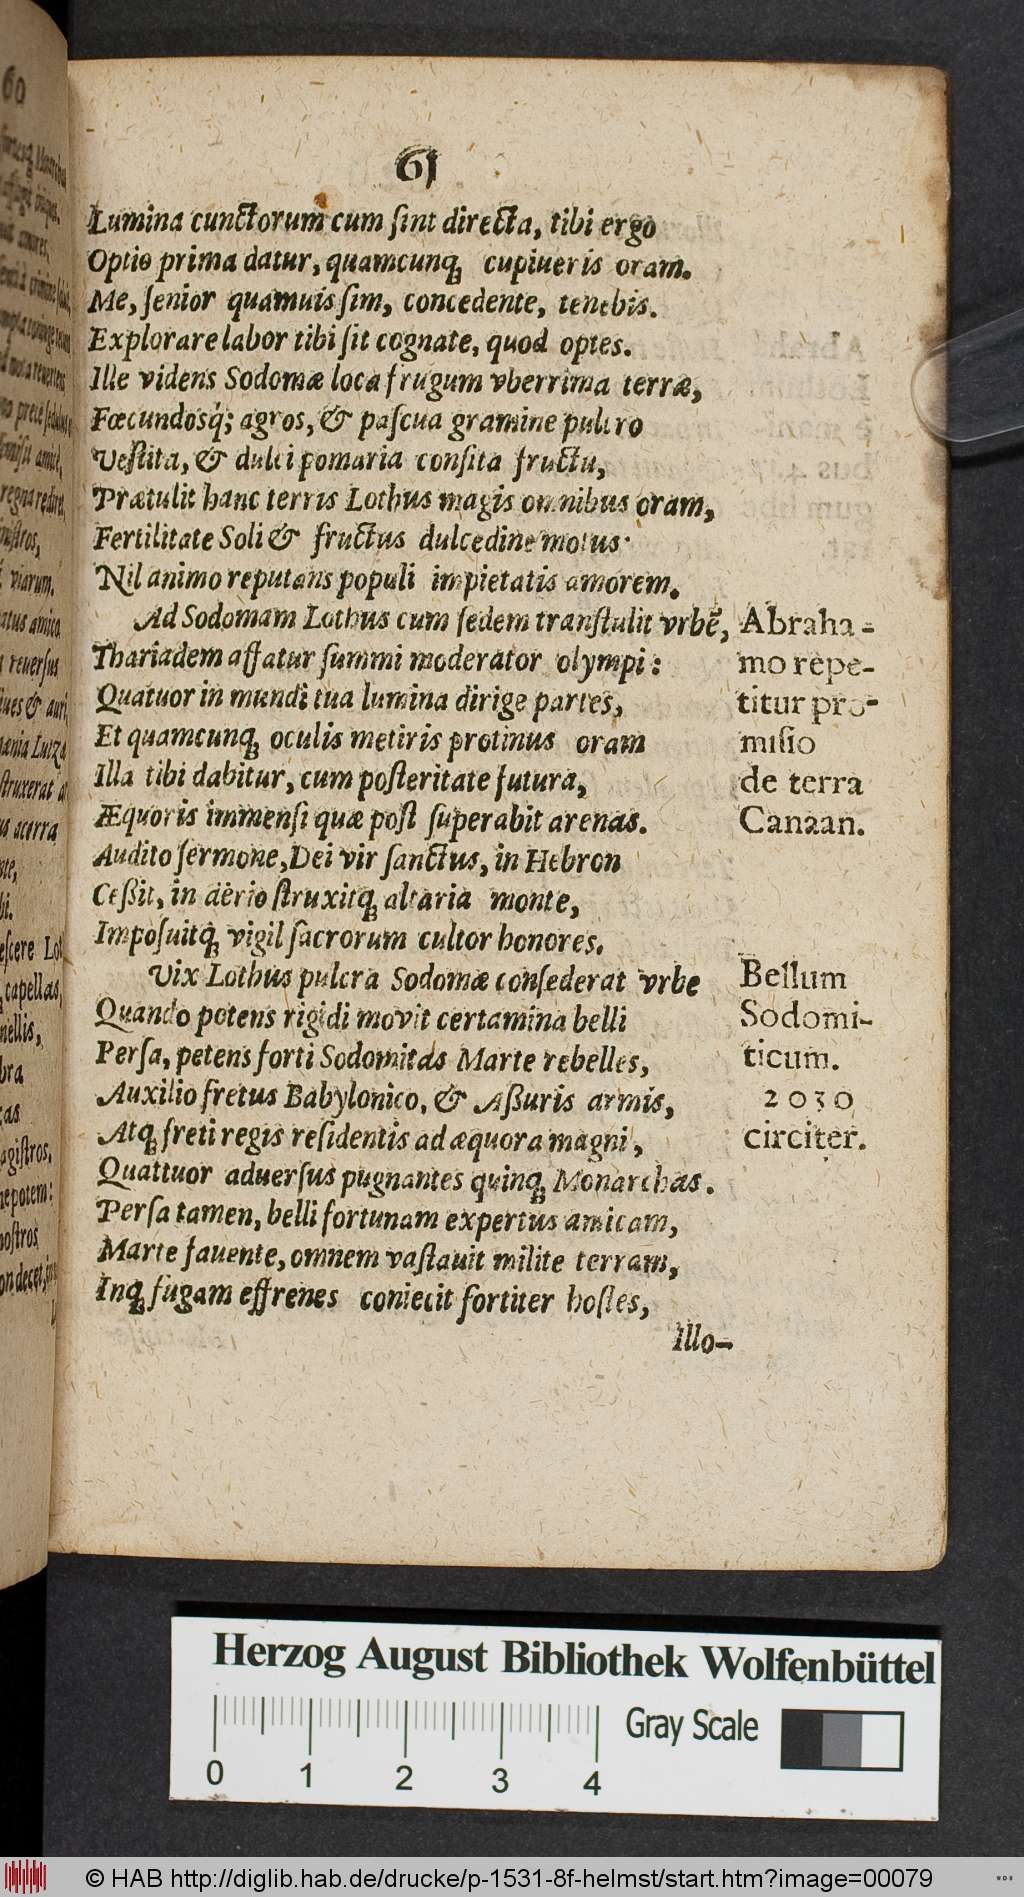 61
Lumina cunctorum cum ſint directa, tibi ergo
Optio prima datur, quamcunq́; cupiueris oram.
Me, ſenior quamuis ſim, concedente, tenebis.
Explorare labor tibi ſit cognate, quod optes.
Ille videns Sodomæ loca frugum vberrima terræ,
Fœcundosq́; agros, & paſcua gramine pulcro
Veſtita, & dulci pomaria conſita fructu,
Prætulit hanc terris Lothus magis omnibus oram,
Fertilitate Soli & fructus dulcedine motus.
Nil animo reputans populi impietatis amorem.
Ad Sodomam Lothus cum ſedem tranſtulit vrbē,
Thariadem affatur ſummi moderator olympi:
Quatuor in mundi tua lumina dirige partes,
Et quamcunq; oculis metiris protinus oram
Illa tibi dabitur, cum poſteritate futura,
Æquoris immenſi quæ poſt ſuperabit arenas.
Audito ſermone, Dei vir ſanctus, in Hebron
Ceßit, in aërio ſtruxitq; altaria monte,
Impoſuitq́; vigil ſacrorum cultor honores.
Vix Lothus pulcra Sodomæ conſederat vrbe
Quando potens rigidi movit certamina belli
Perſa, petens forti Sodomitas Marte rebelles,
Auxilio fretus Babylonico, & Aßuris armis,
Atq; freti regis reſidentis ad æquora magni,
Quattuor aduerſus pugnantes quinq; Monarchas.
Perſa tamen, belli fortunam expertus amicam,
Marte fauente, omnem vaſtauit milite terram,
Inq; fugam effrenes coniecit fortiter hoſtes,
Illo-
Abraha-
mo repe-
titur pro-
miſio
de terra
Canaan.
Bellum
Sodomi-
ticum.
2030
circiter.
Herzog August Bibliothek Wolfenbüttel
0 1 2 3 4
Gray Scale
© HAB http://diglib.hab.de/drucke/p-1531-8f-helmst/start.htm?image=00079